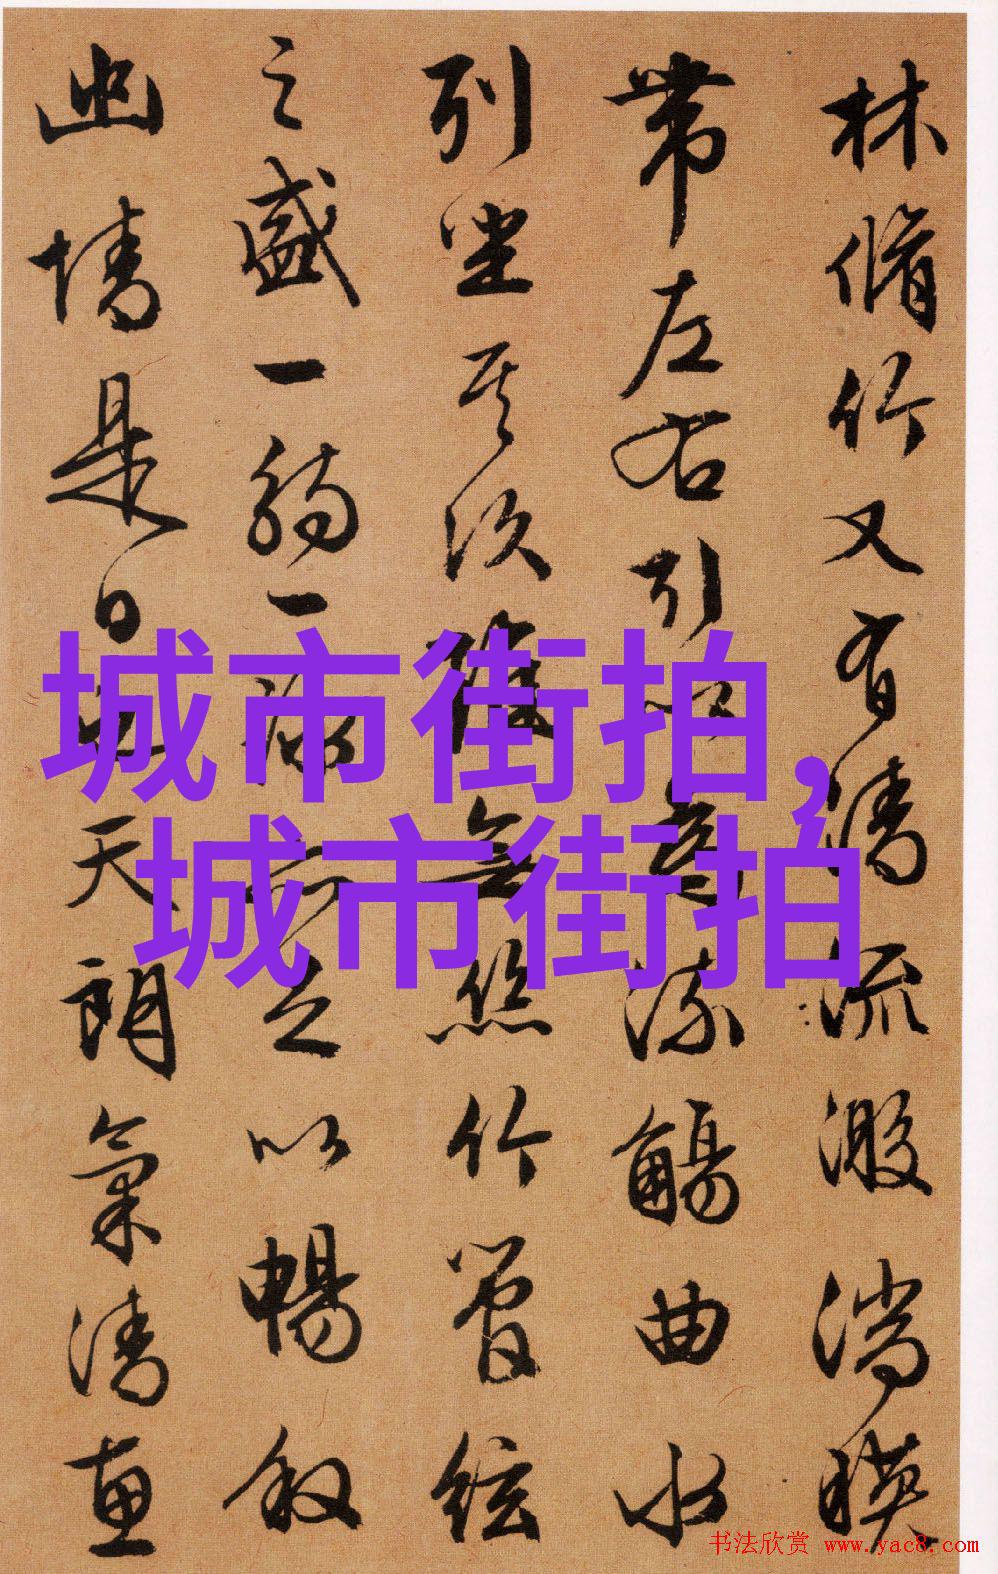 城市街拍,
城市街拍
林脩竹又有清流激湍暎
帶左右引以為流觴曲水
列坐其次雖無絲竹管絃
之盛一觴一詠亦足以暢叙
幽情是日也天朗氣清惠
书法欣赏 www.yac8.com